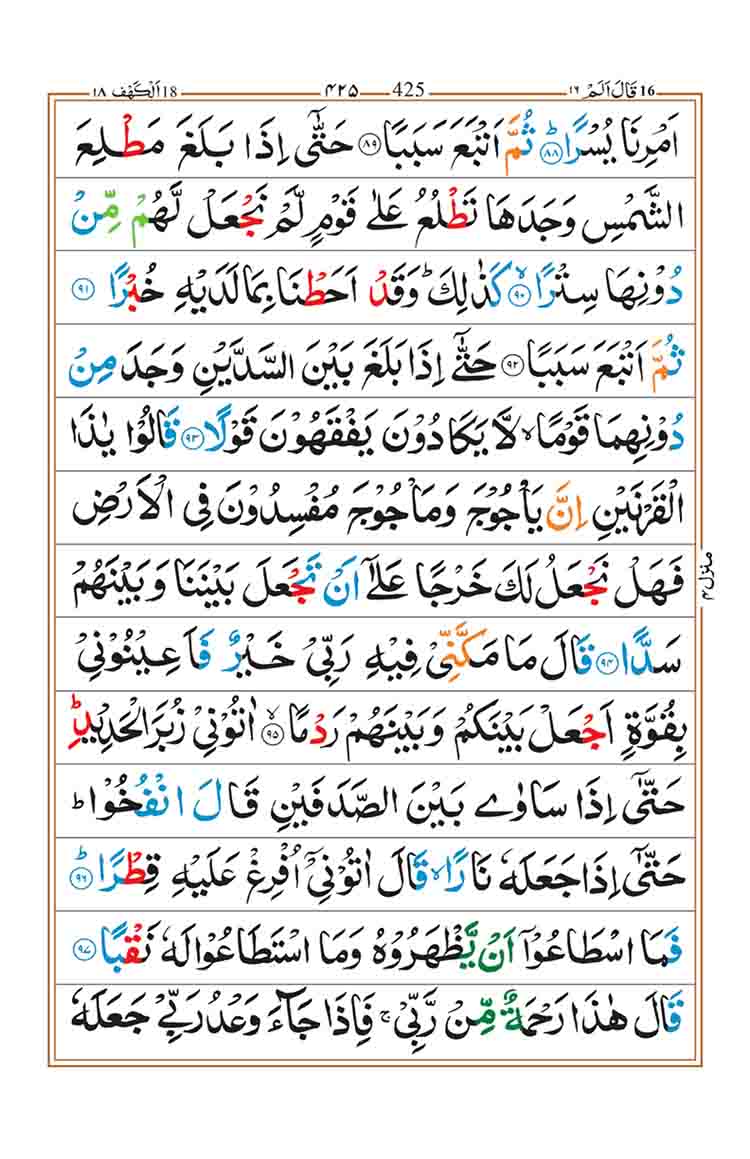 16 قَالَ اَلَمْ ١٦ — 425 — ۴۲۵ — 18 اَلْكَهْف ١٨
اَمْرِنَا يُسْرًا ؕ‏﴿۸۸﴾ ثُمَّ اَتْبَعَ سَبَبًا ﴿۸۹﴾ حَتّٰۤى اِذَا بَلَغَ مَطْلِعَ
الشَّمْسِ وَجَدَهَا تَطْلُعُ عَلٰى قَوْمٍ لَّمْ نَجْعَلْ لَّهُمْ مِّنْ
دُوْنِهَا سِتْرًا ۙ‏﴿۹۰﴾ كَذٰلِكَ ؕ وَقَدْ اَحَطْنَا بِمَا لَدَيْهِ خُبْرًا ﴿۹۱﴾
ثُمَّ اَتْبَعَ سَبَبًا ﴿۹۲﴾ حَتّٰۤى اِذَا بَلَغَ بَيْنَ السَّدَّيْنِ وَجَدَ مِنْ
دُوْنِهِمَا قَوْمًا ۙ لَّا يَكَادُوْنَ يَفْقَهُوْنَ قَوْلًا ﴿۹۳﴾ قَالُوْا يٰذَا
الْقَرْنَيْنِ اِنَّ يَاْجُوْجَ وَمَاْجُوْجَ مُفْسِدُوْنَ فِى الْاَرْضِ
فَهَلْ نَجْعَلُ لَكَ خَرْجًا عَلٰٓى اَنْ تَجْعَلَ بَيْنَنَا وَبَيْنَهُمْ
سَدًّا ﴿۹۴﴾ قَالَ مَا مَكَّنِّىْ فِيْهِ رَبِّىْ خَيْرٌ فَاَعِيْنُوْنِىْ
بِقُوَّةٍ اَجْعَلْ بَيْنَكُمْ وَبَيْنَهُمْ رَدْمًا ۙ‏﴿۹۵﴾ اٰتُوْنِىْ زُبَرَ الْحَدِيْدِ ؕ
حَتّٰۤى اِذَا سَاوٰى بَيْنَ الصَّدَفَيْنِ قَالَ انْفُخُوْا ؕ
حَتّٰۤى اِذَا جَعَلَهٗ نَارًا ۙ قَالَ اٰتُوْنِىْۤ اُفْرِغْ عَلَيْهِ قِطْرًا ؕ‏﴿۹۶﴾
فَمَا اسْطَاعُوْۤا اَنْ يَّظْهَرُوْهُ وَمَا اسْتَطَاعُوْا لَهٗ نَقْبًا ﴿۹۷﴾
قَالَ هٰذَا رَحْمَةٌ مِّنْ رَّبِّىْ ۚ فَاِذَا جَآءَ وَعْدُ رَبِّىْ جَعَلَهٗ
منزل ۴